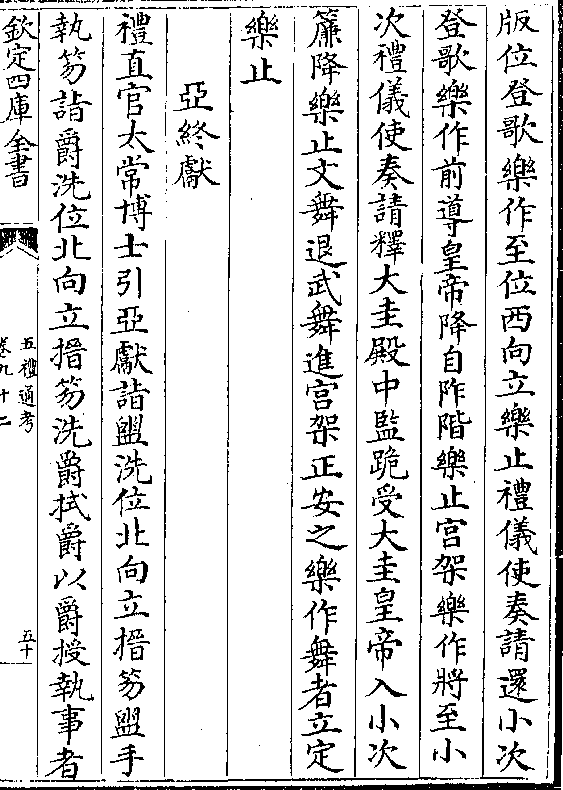 版位登歌樂作至位西向立樂止禮儀使奏請還小次
登歌樂作前導皇帝降自阼階樂止宫架樂作將至小
次禮儀使奏請釋大圭殿中監跪受大圭皇帝入小次
簾降樂止文舞退武舞進宫架正安之樂作舞者立定
樂止
亞終獻
禮直官太常博士引亞獻詣盥洗位北向立搢笏盥手
執笏詣爵洗位北向立搢笏洗爵拭爵以爵授執事者
欽定四庫全書
五禮通考
卷九十二
五十